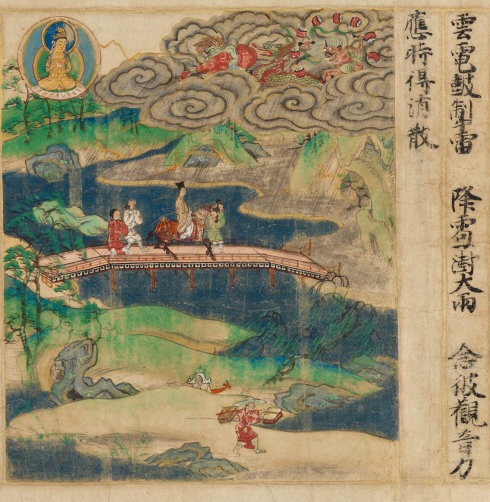 雲電皷掣雷 降雹澍大雨 念彼觀音力
應時得消散